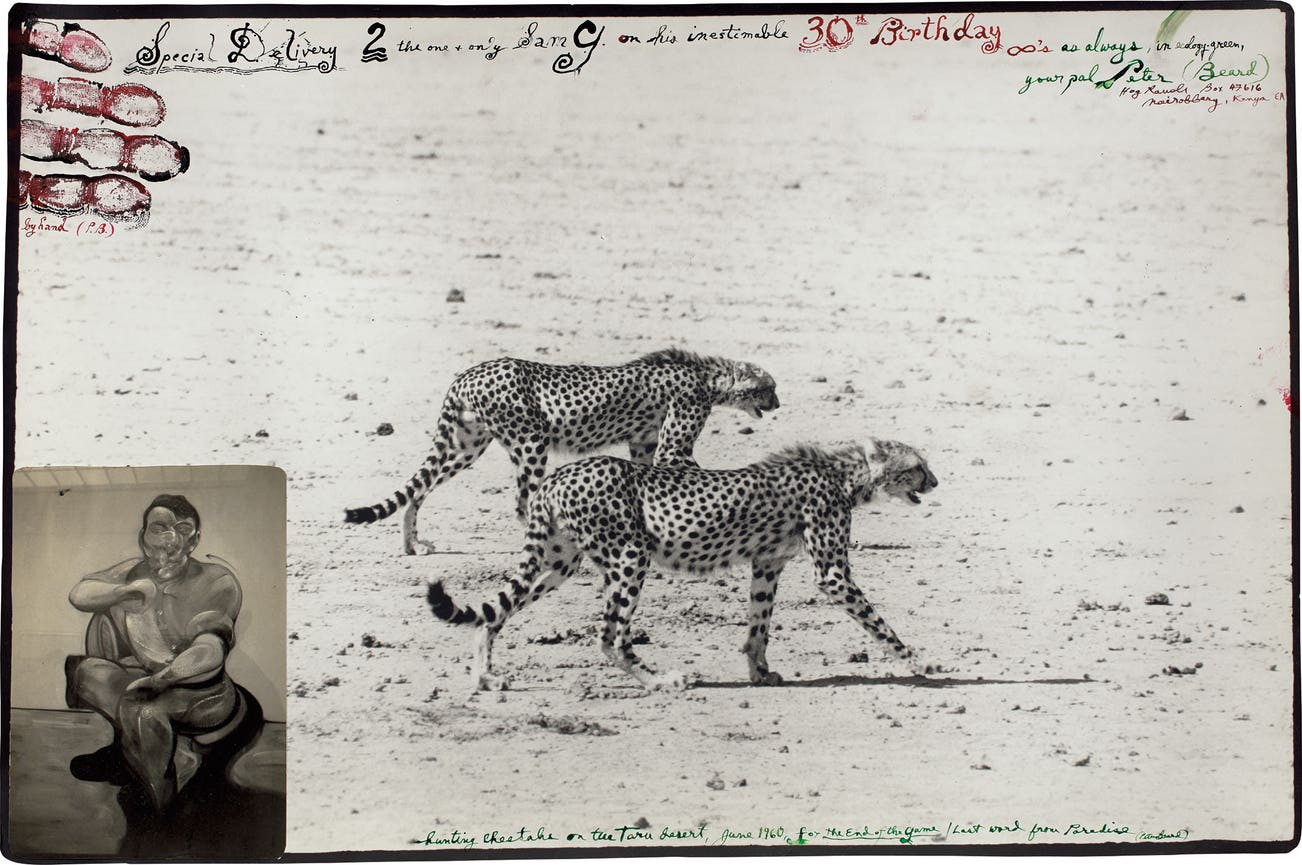 Special Delivery 2 the one + only Sam G. on his inestimable 30th Birthday ∞'s as always, in ecology-green,
your pal Peter (Beard)
Hog Ranch Box 47616
Nairobberg, Kenya EA
by hand (P.B.)
hunting cheetahs on the Taru desert, June 1960, for the End of the Game / Last word from Paradise